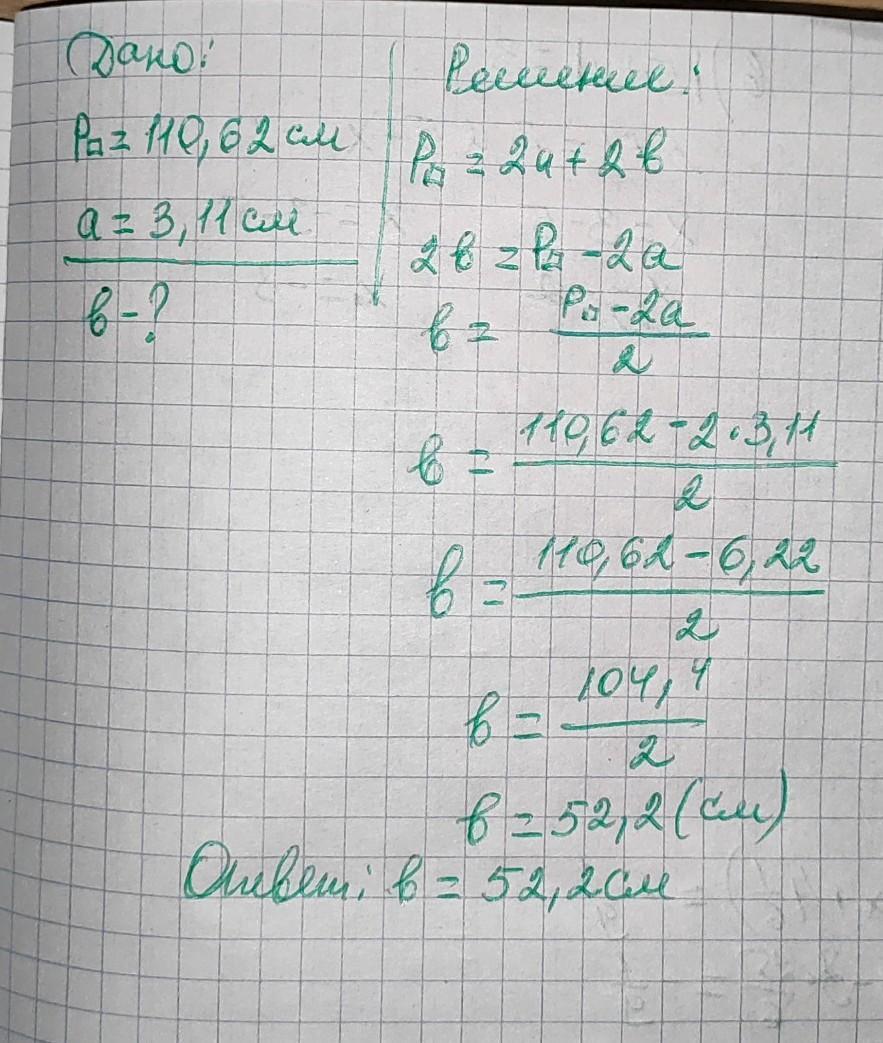 Дано:
P▫ = 110,62 см
a = 3,11 см
в - ?
Решение:
P▫ = 2a + 2в
2в = P▫ - 2a
в = P▫ - 2a / 2
в = 110,62 - 2 · 3,11 / 2
в = 110,62 - 6,22 / 2
в = 104,4 / 2
в = 52,2 (см)
Ответ: в = 52,2 см